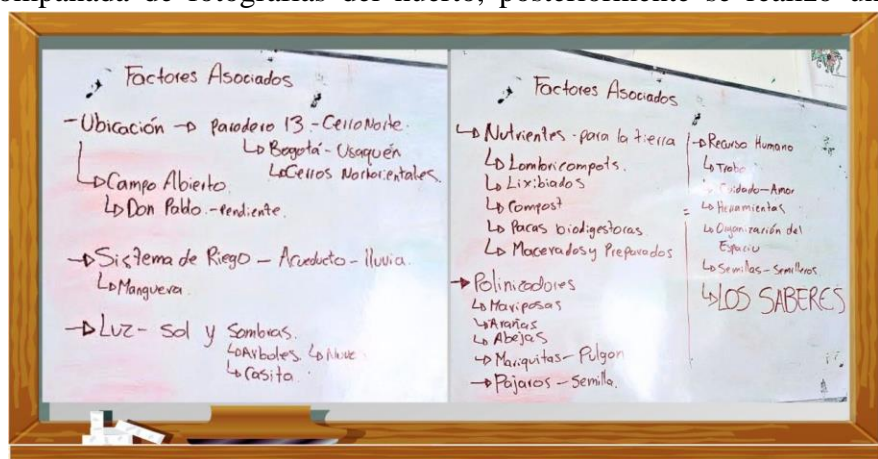 compañada de fotografías del huerto, posteriormente se realizó un
Factores Asociados
- Ubicación → Paradero 13 - Cerro Norte.
↳ Bogotá - Usaquén
↳ Cerros Nororientales
↳ Campo Abierto.
↳ Don Pablo - Pendiente.
→ Sistema de Riego - Acueducto - lluvia.
↳ Manguera.
→ Luz - Sol y Sombras.
↳ Arboles ↳ Nube
↳ Casita
Factores Asociados
↳ Nutrientes - para la tierra
↳ Lombricompots.
↳ Lixibiados
↳ Compost
↳ Pacas biodigestoras
↳ Macerados y Preparados
→ Polinizadores
↳ Mariposas
↳ Arañas
↳ Abejas
↳ Mariquitas - Pulgon
→ Pájaros - Semilla.
→ Recurso Humano
↳ Cuidado - Amor
↳ Herramientas
↳ Organización del
Espacio
↳ Semillas - Semilleros
↳ LOS SABERES